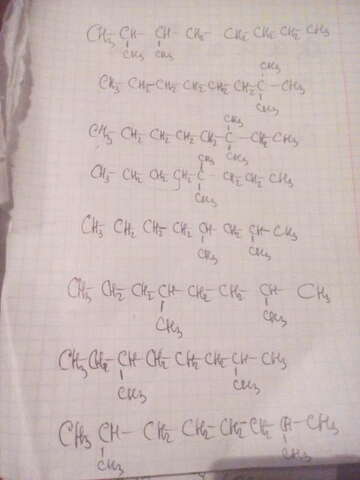 CH3 - CH - CH - CH2 - CH2 - CH2 - CH2 - CH3
CH3 CH3
CH3
CH3 - CH2 - CH2 - CH2 - CH2 - CH2 - C - CH3
CH3
CH3
CH3 - CH2 - CH2 - CH2 - CH2 - C - CH2 - CH3
CH3
CH3
CH3 - CH2 - CH2 - CH2 - C - CH2 - CH2 - CH3
CH3
CH3 - CH2 - CH2 - CH2 - CH - CH2 - CH - CH3
CH3 CH3
CH3 - CH2 - CH2 - CH - CH2 - CH2 - CH - CH3
CH3 CH3
CH3 - CH2 - CH - CH2 - CH2 - CH2 - CH - CH3
CH3 CH3
CH3 - CH - CH2 - CH2 - CH2 - CH2 - CH - CH3
CH3 CH3